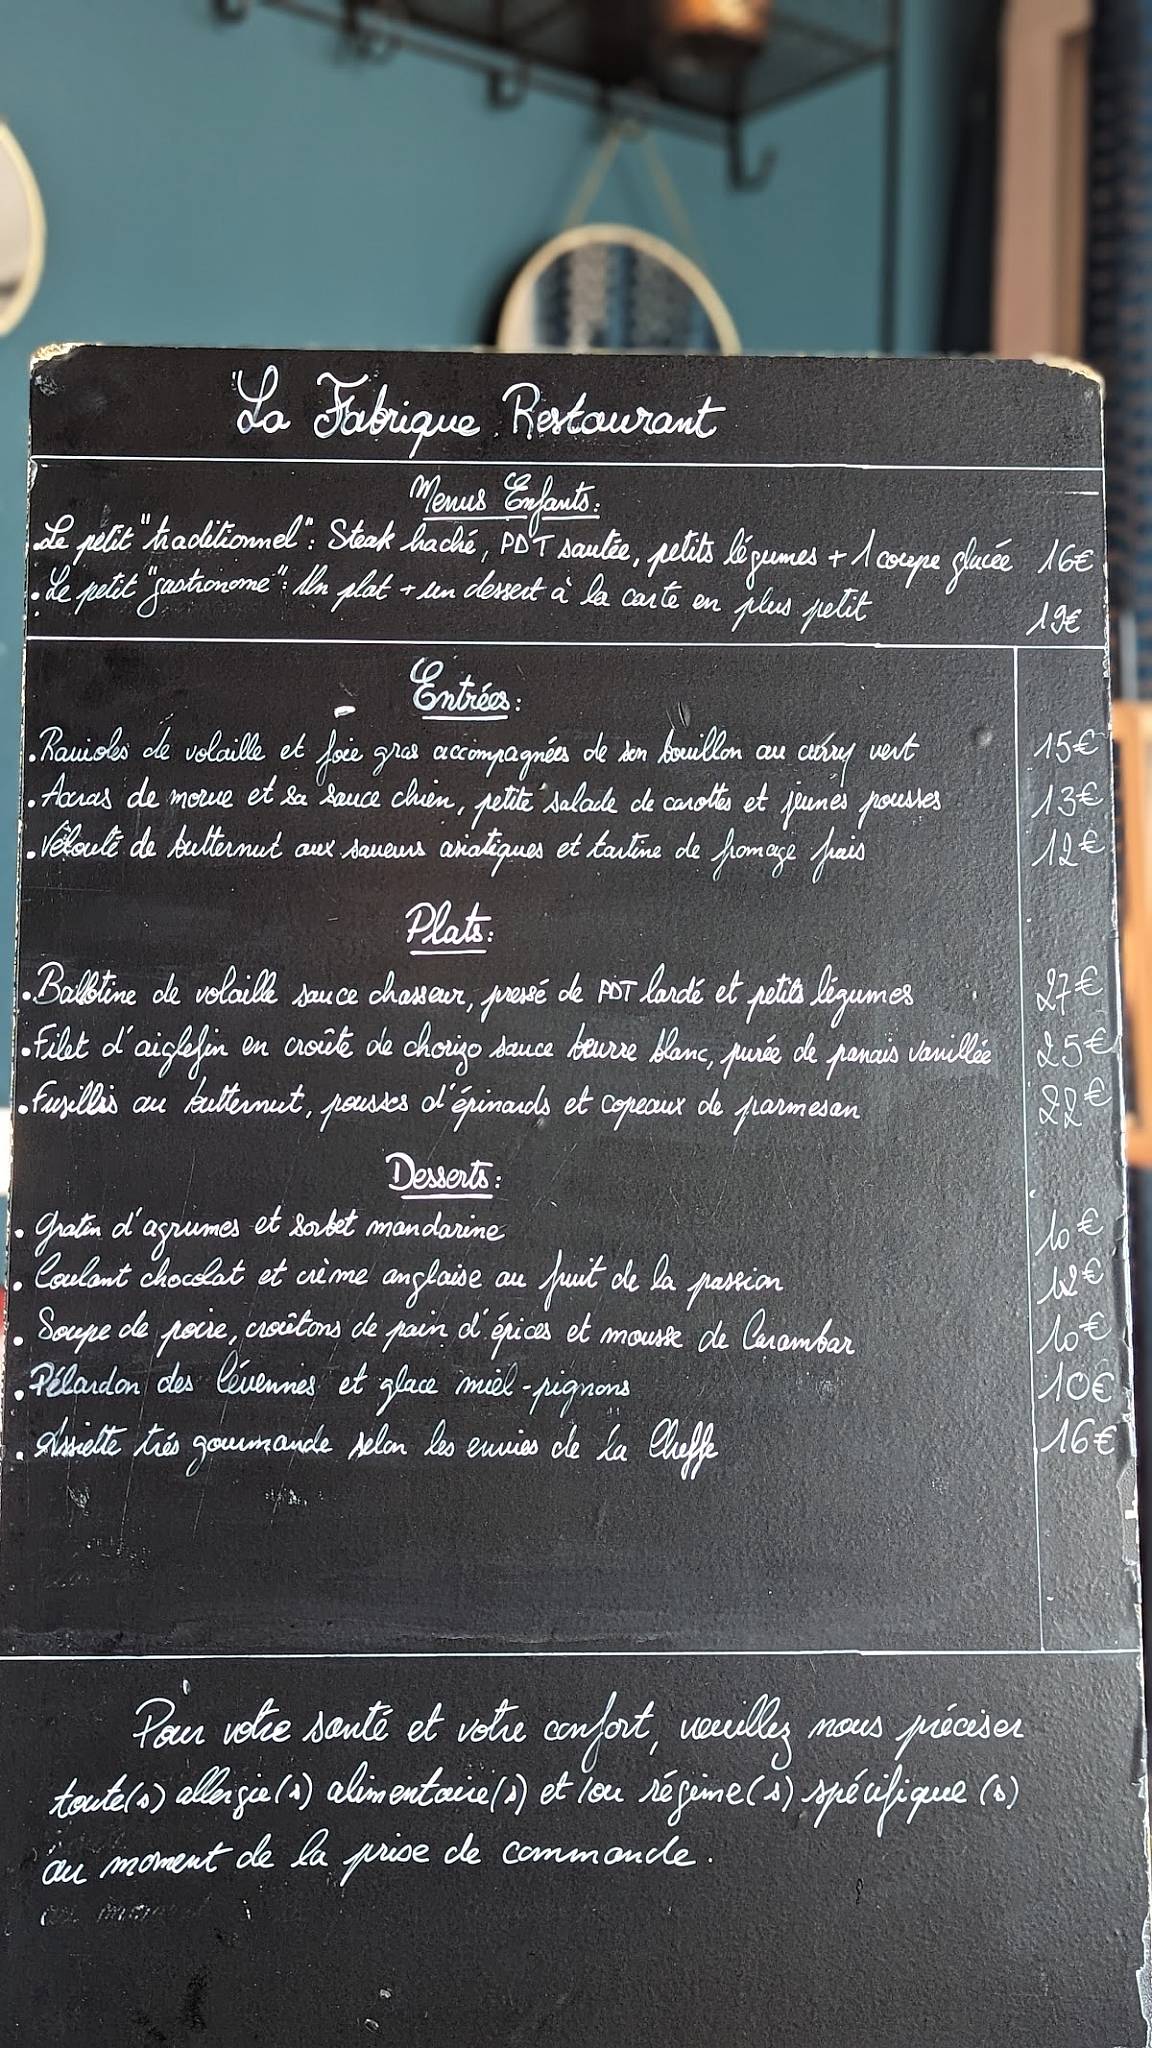 La Fabrique Restaurant
Menus Enfants:
.Le petit "traditionnel": Steak haché, PDT sautée, petits légumes + 1 coupe glacée 16€
.Le petit "gastronome": Un plat + un dessert à la carte en plus petit 19€
Entrées:
.Ravioles de volaille et foie gras accompagnées de son bouillon au curry vert 15€
.Accras de morue et sa sauce chien, petite salade de carottes et jeunes pousses 13€
.Velouté de butternut aux saveurs asiatiques et tartine de fromage frais 12€
Plats:
.Ballotine de volaille sauce chasseur, pressé de PDT lardé et petits légumes 27€
.Filet d'aiglefin en croûte de chorizo sauce beurre blanc, purée de panais vanillée 25€
.Fusillis au butternut, pousses d'épinards et copeaux de parmesan 22€
Desserts:
. Gratin d'agrumes et sorbet mandarine 10€
. Coulant chocolat et crème anglaise au fruit de la passion 12€
. Soupe de poire, croûtons de pain d'épices et mousse de Carambar 10€
. Pélardon des Cévennes et glace miel-pignons 10€
. Assiette très gourmande selon les envies de La Cheffe 16€
Pour votre santé et votre confort, veuillez nous préciser
toute(s) allergie(s) alimentaire(s) et/ou régime(s) spécifique(s)
au moment de la prise de commande.